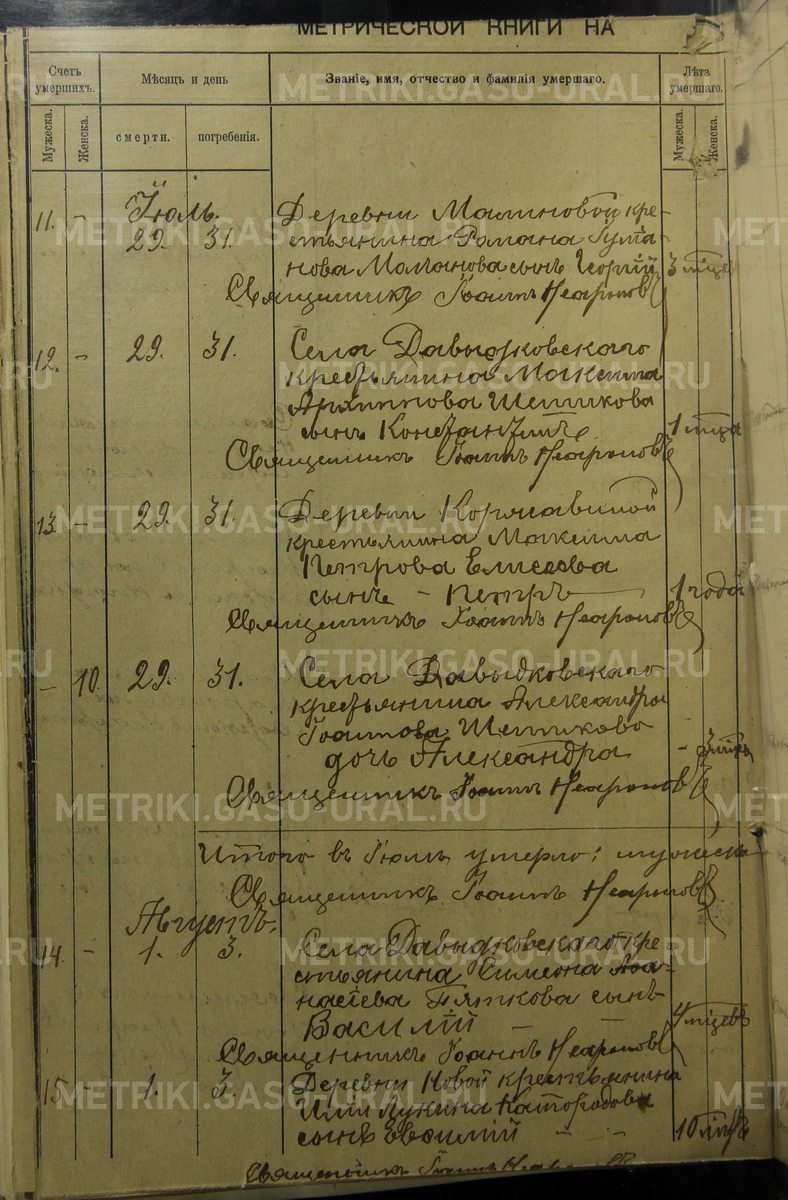 МЕТРИЧЕСКОЙ КНИГИ НА
Счетъ умершихъ.
Мѣсяцъ и день
Званіе, имя, отчество и фамилія умершаго.
Лѣта умершаго.
Мужеска.
Женска.
смерти.
погребенія.
Мужеска.
Женска.
Іюль.
11. - 29. 31. Деревни Малиновой кре-
стьянина Романа
нова сынъ Георгій 3 мцев
Священникъ Іоаннъ Неароновъ
12. - 29. 31. Села Давыдковскаго
крестьянина Максима
Архиппова Шетникова
сынъ Константинъ 1 мца
Священникъ Іоаннъ Неароновъ
13. - 29. 31. Деревни Корчавиной
крестьянина Максима
Петрова Елисеева
сынъ - Петръ 1 года
Священникъ Іоаннъ Неароновъ
- 10. 29. 31. Села Давыдковскаго
крестьянина Александра
Іоаннова Шетникова
дочь Александра -
Священникъ Іоаннъ Неароновъ
Итого въ Іюлѣ умерло: мужеска
Священникъ Іоаннъ Неароновъ
Августъ.
14. - 1. 3. Села Давыдковскаго кре-
стьянина Симеона Аѳа-
насіева Пяткова сынъ
Василій - - 4 мцевъ
Священникъ Іоаннъ Неароновъ
15. - 1. 3. Деревни Новой крестьянина
Иліи Лукина
сынъ Евсимій - - 10
Священникъ Іоаннъ
METRIKI.GASO-URAL.RU